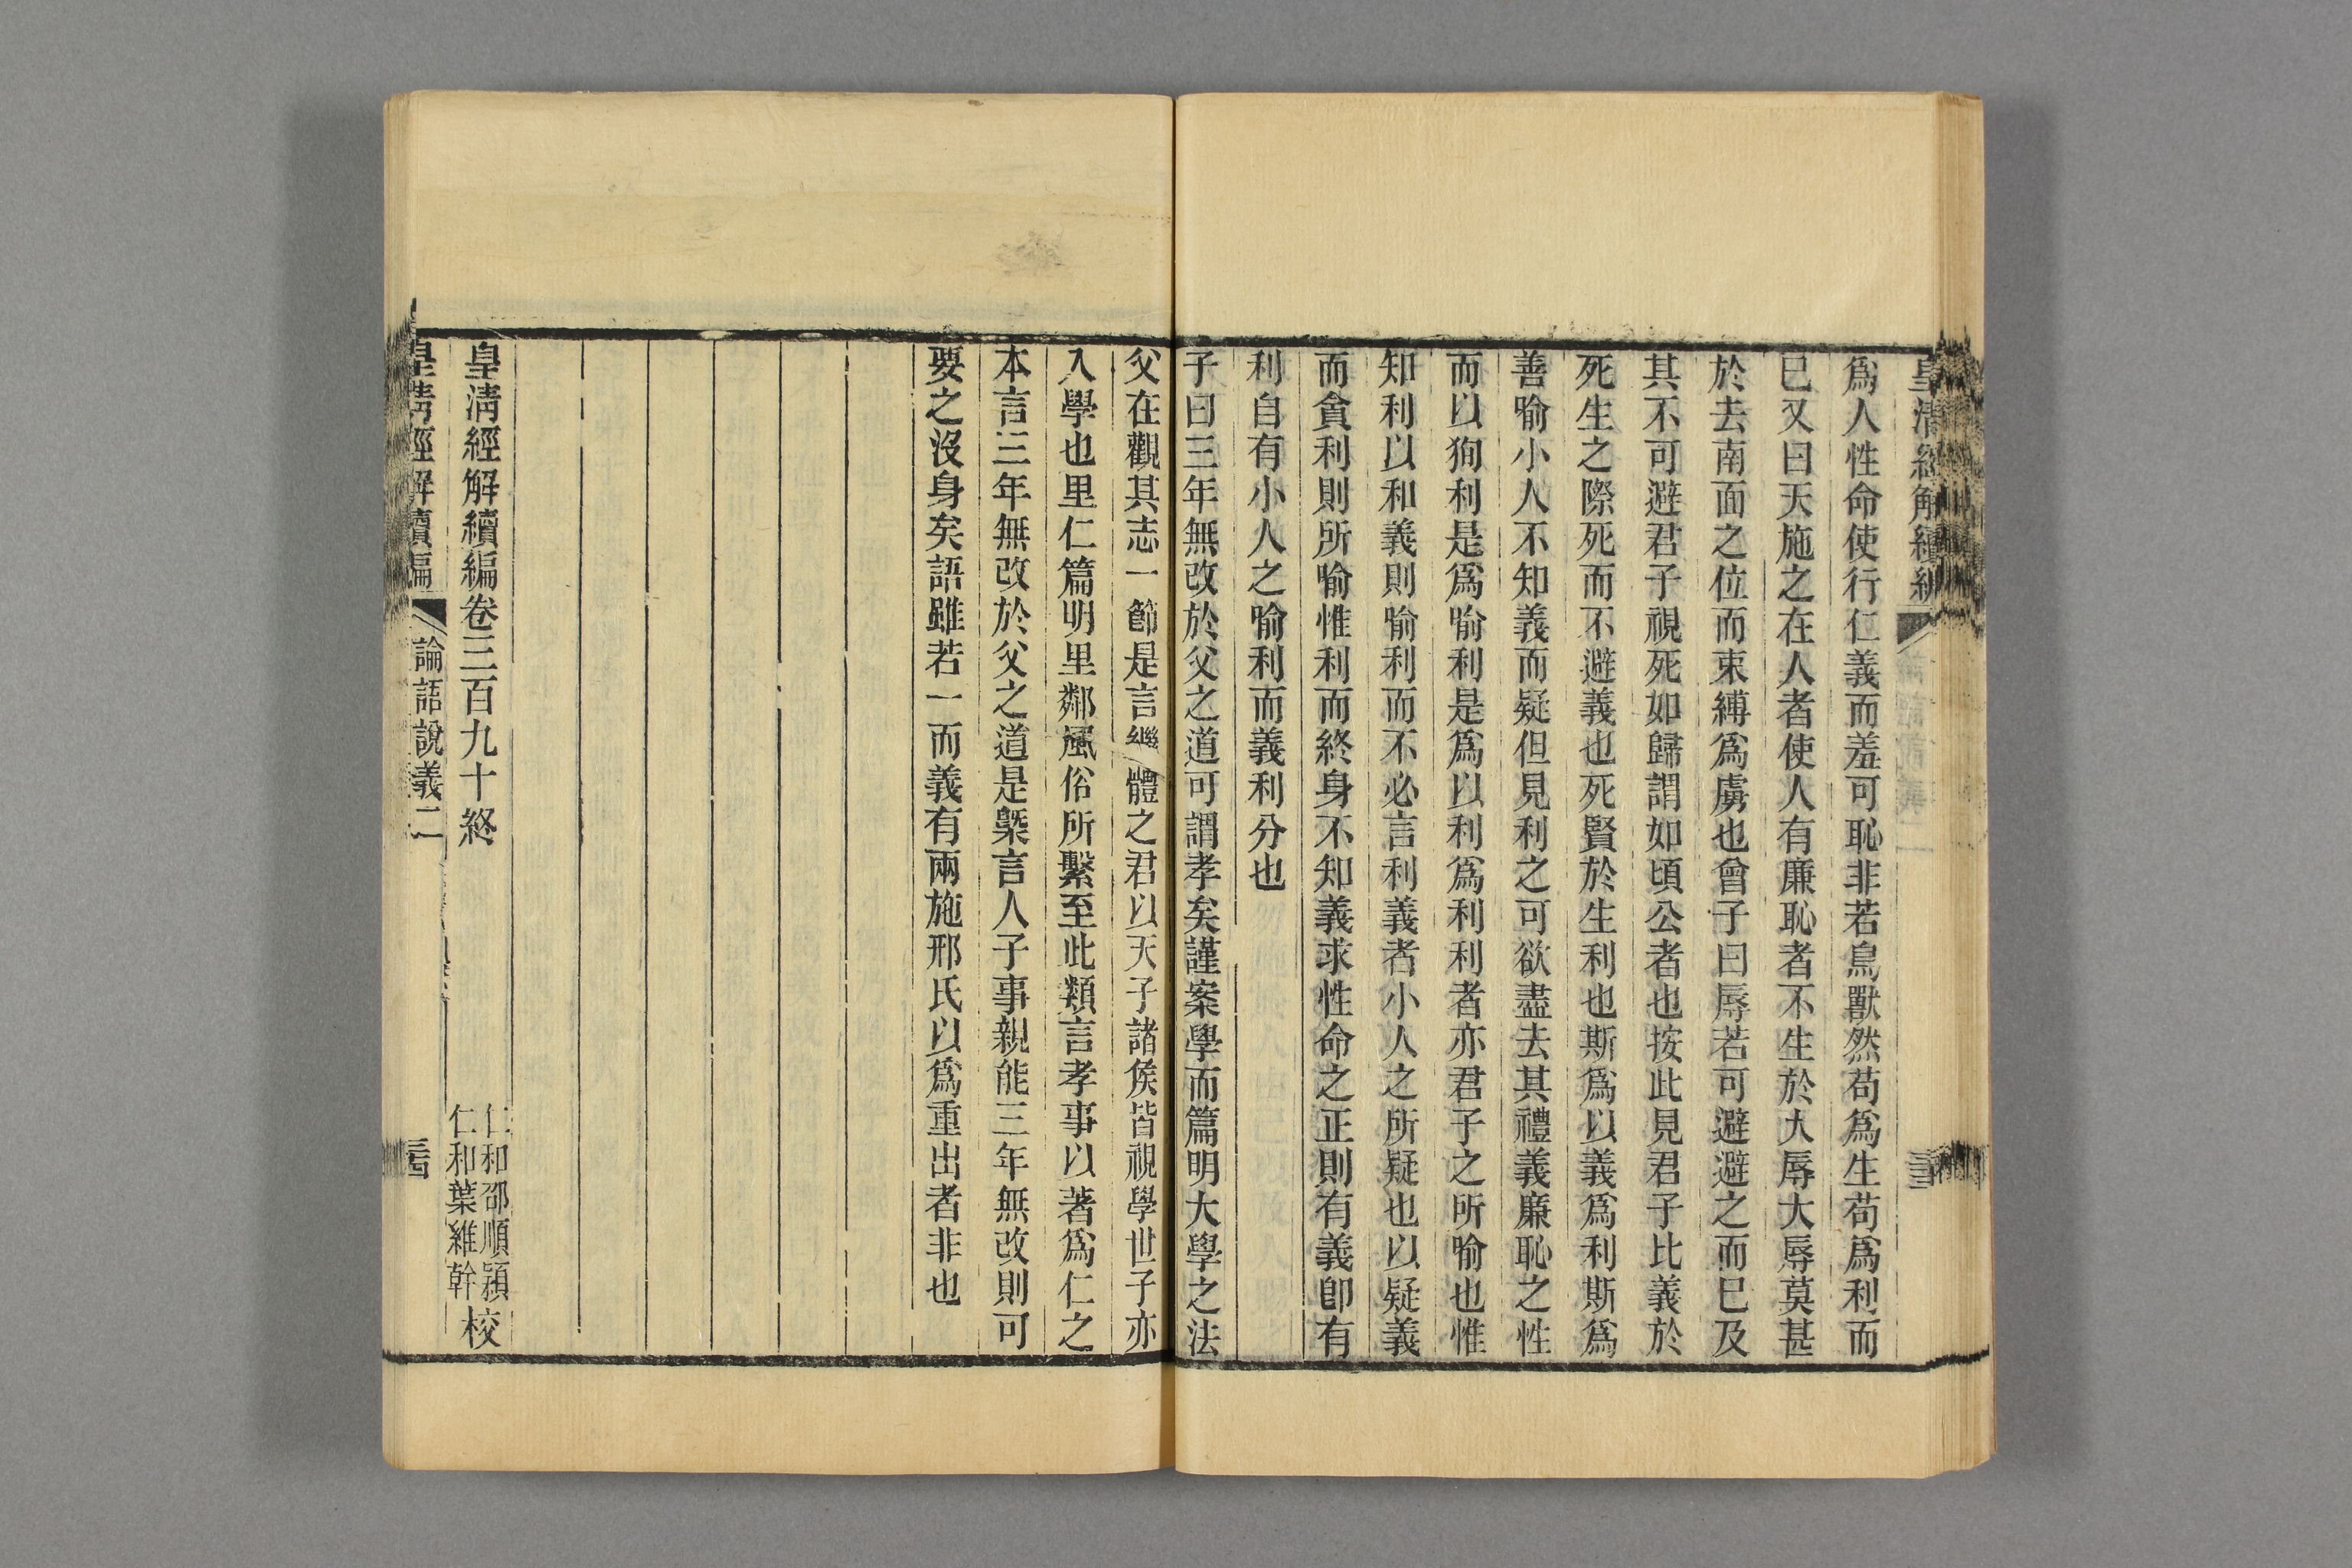 皇清經解續編
爲人性命使行仁義而羞可恥非若鳥獸然苟爲生苟爲利而
已又曰天施之在人者使人有廉恥者不生於大辱大辱莫甚
於去南面之位而束縛爲虜也曾子曰辱若可避避之而已及
其不可避君子視死如歸謂如頃公者也按此見君子比義於
死生之際死而不避義也死賢於生利也斯爲以義爲利斯爲
善喻小人不知義而疑但見利之可欲盡去其禮義廉恥之性
而以狥利是爲喻利是爲以利爲利利者亦君子之所喻也惟
知利以和義則喻利而不必言利義者小人之所疑也以疑義
而貪利則所喻惟利而終身不知義求性命之正則有義卽有
利自有小人之喻利而義利分也
子曰三年無改於父之道可謂孝矣謹案學而篇明大學之法
父在觀其志一節是言繼體之君以天子諸侯皆視學世子亦
入學也里仁篇明里鄰風俗所繫至此類言孝事以著爲仁之
本言三年無改於父之道是槩言人子事親能三年無改則可
要之沒身矣語雖若一而義有兩施邢氏以爲重出者非也
皇清經解續編卷三百九十終
仁和邵順潁
仁和葉維幹
校
皇清經解續編
論語說義二